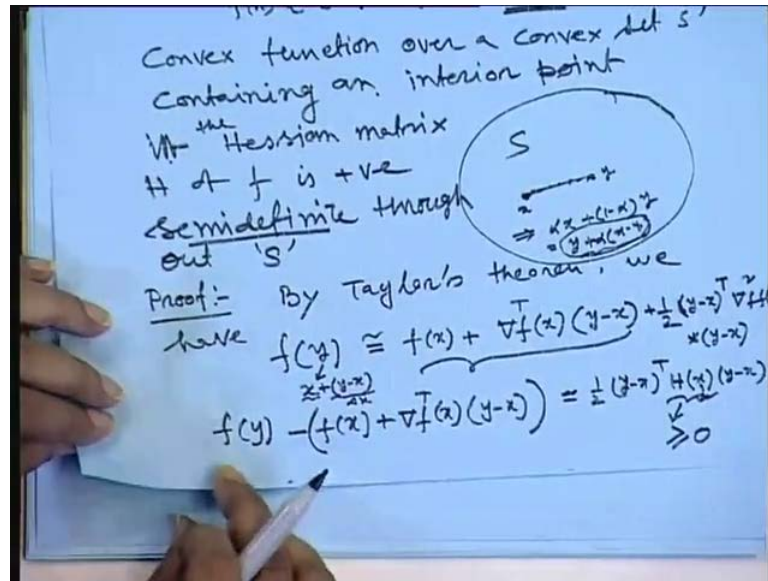 Convex function over a convex set S'
containing an interior point
iff the Hessian matrix
H of f is +ve
semidefinite through
out 'S'
S
x y
⇒ αx + (1-α)y
= y + α(x-y)
Proof:- By Taylor's theorem, we
have f(y) ≅ f(x) + ∇ᵀf(x)(y-x) + ½(y-x)ᵀ∇²f(
*(y-x)
x+(y-x)
Δx
f(y) - (f(x) + ∇ᵀf(x)(y-x)) = ½(y-x)ᵀH(x)(y-x)
≥0